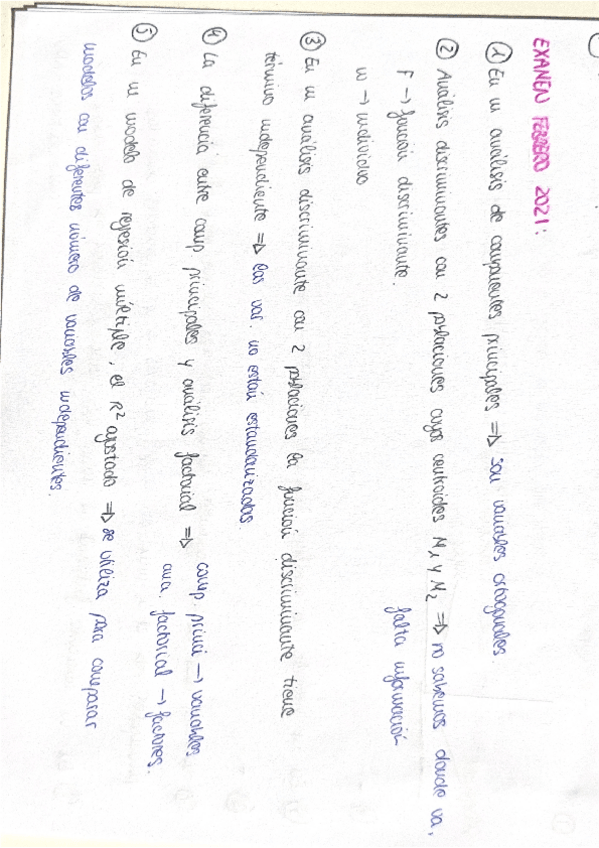 EXAMEN FEBRERO 2021:
① En un análisis de componentes principales ⇒ son variables ortogonales
② Análisis discriminantes con 2 poblaciones cuyos centroides M₁ y M₂ ⇒ no sabemos donde va,
F → función discriminante. falta información
w → individuo
③ En un análisis discriminante con 2 poblaciones la función discriminante tiene
término independiente ⇒ las var. no están estandarizadas.
④ La diferencia entre comp. principales y análisis factorial ⇒ comp. princi → variables
ana. factorial → factores.
⑤ En un modelo de regresión múltiple, el R² ajustado ⇒ se utiliza para comparar
modelos con diferentes número de variables independientes.